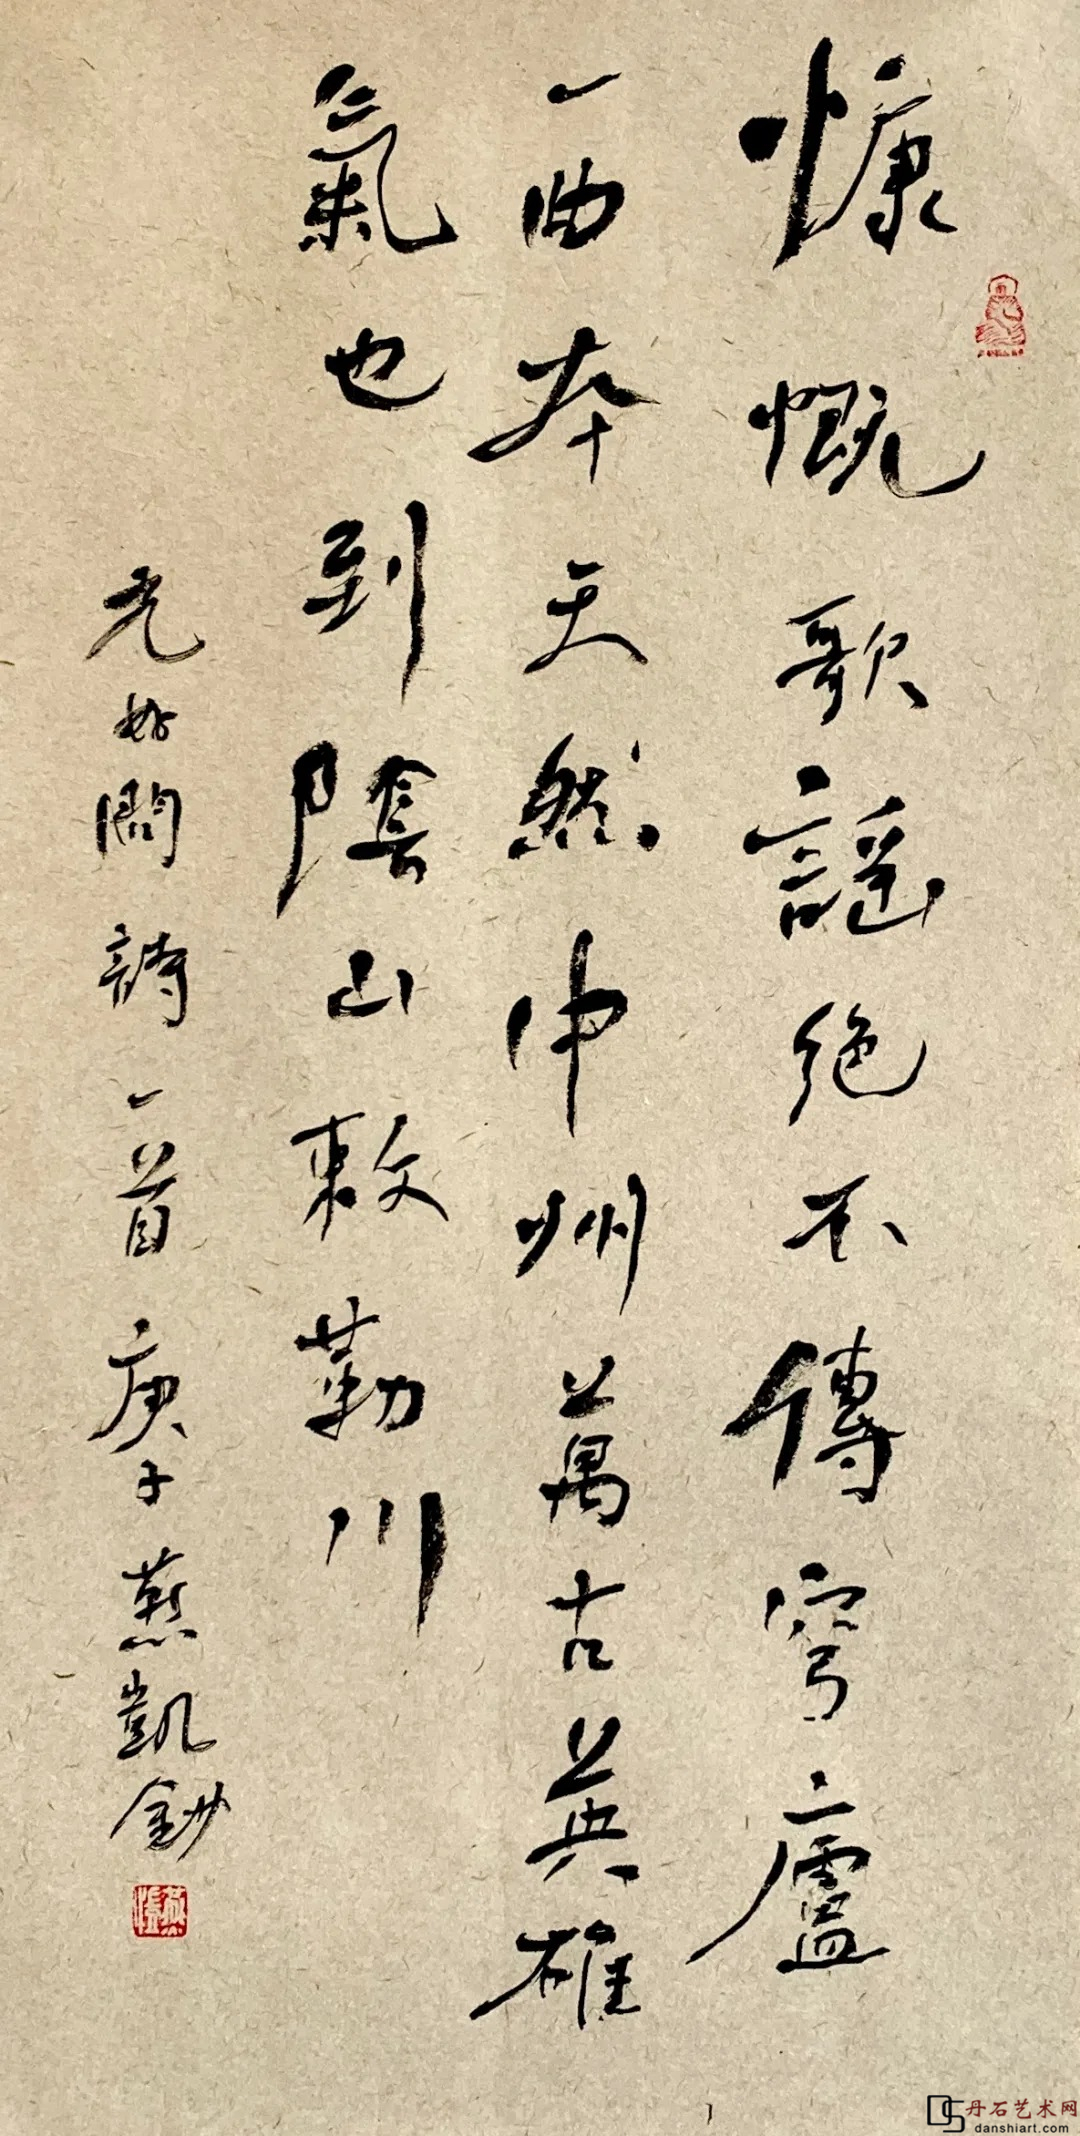 慷慨歌謠絶不傳穹廬
一曲本天然中州萬古英雄
氣也到陰山敕勒川
元好問詩一首庚子燕凱鈔
DS丹石艺术网
danshiart.com